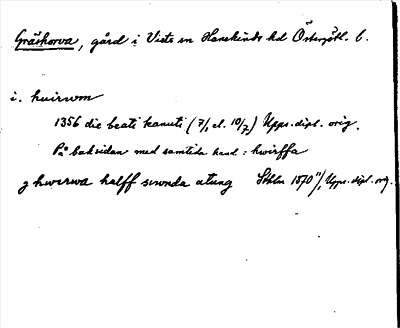 Gråskorva, gård i Vists sn Hanekinds hd Östergötl. l.
i. huirwom
1356 die beati kanuti (7/1 el. 10/7) Upps. dipl. orig.
På baksidan med samtida hand: hwirffa
j hwerwa halff siwnda atung Sthlm 1570 11/1 Upps. dipl. orig.